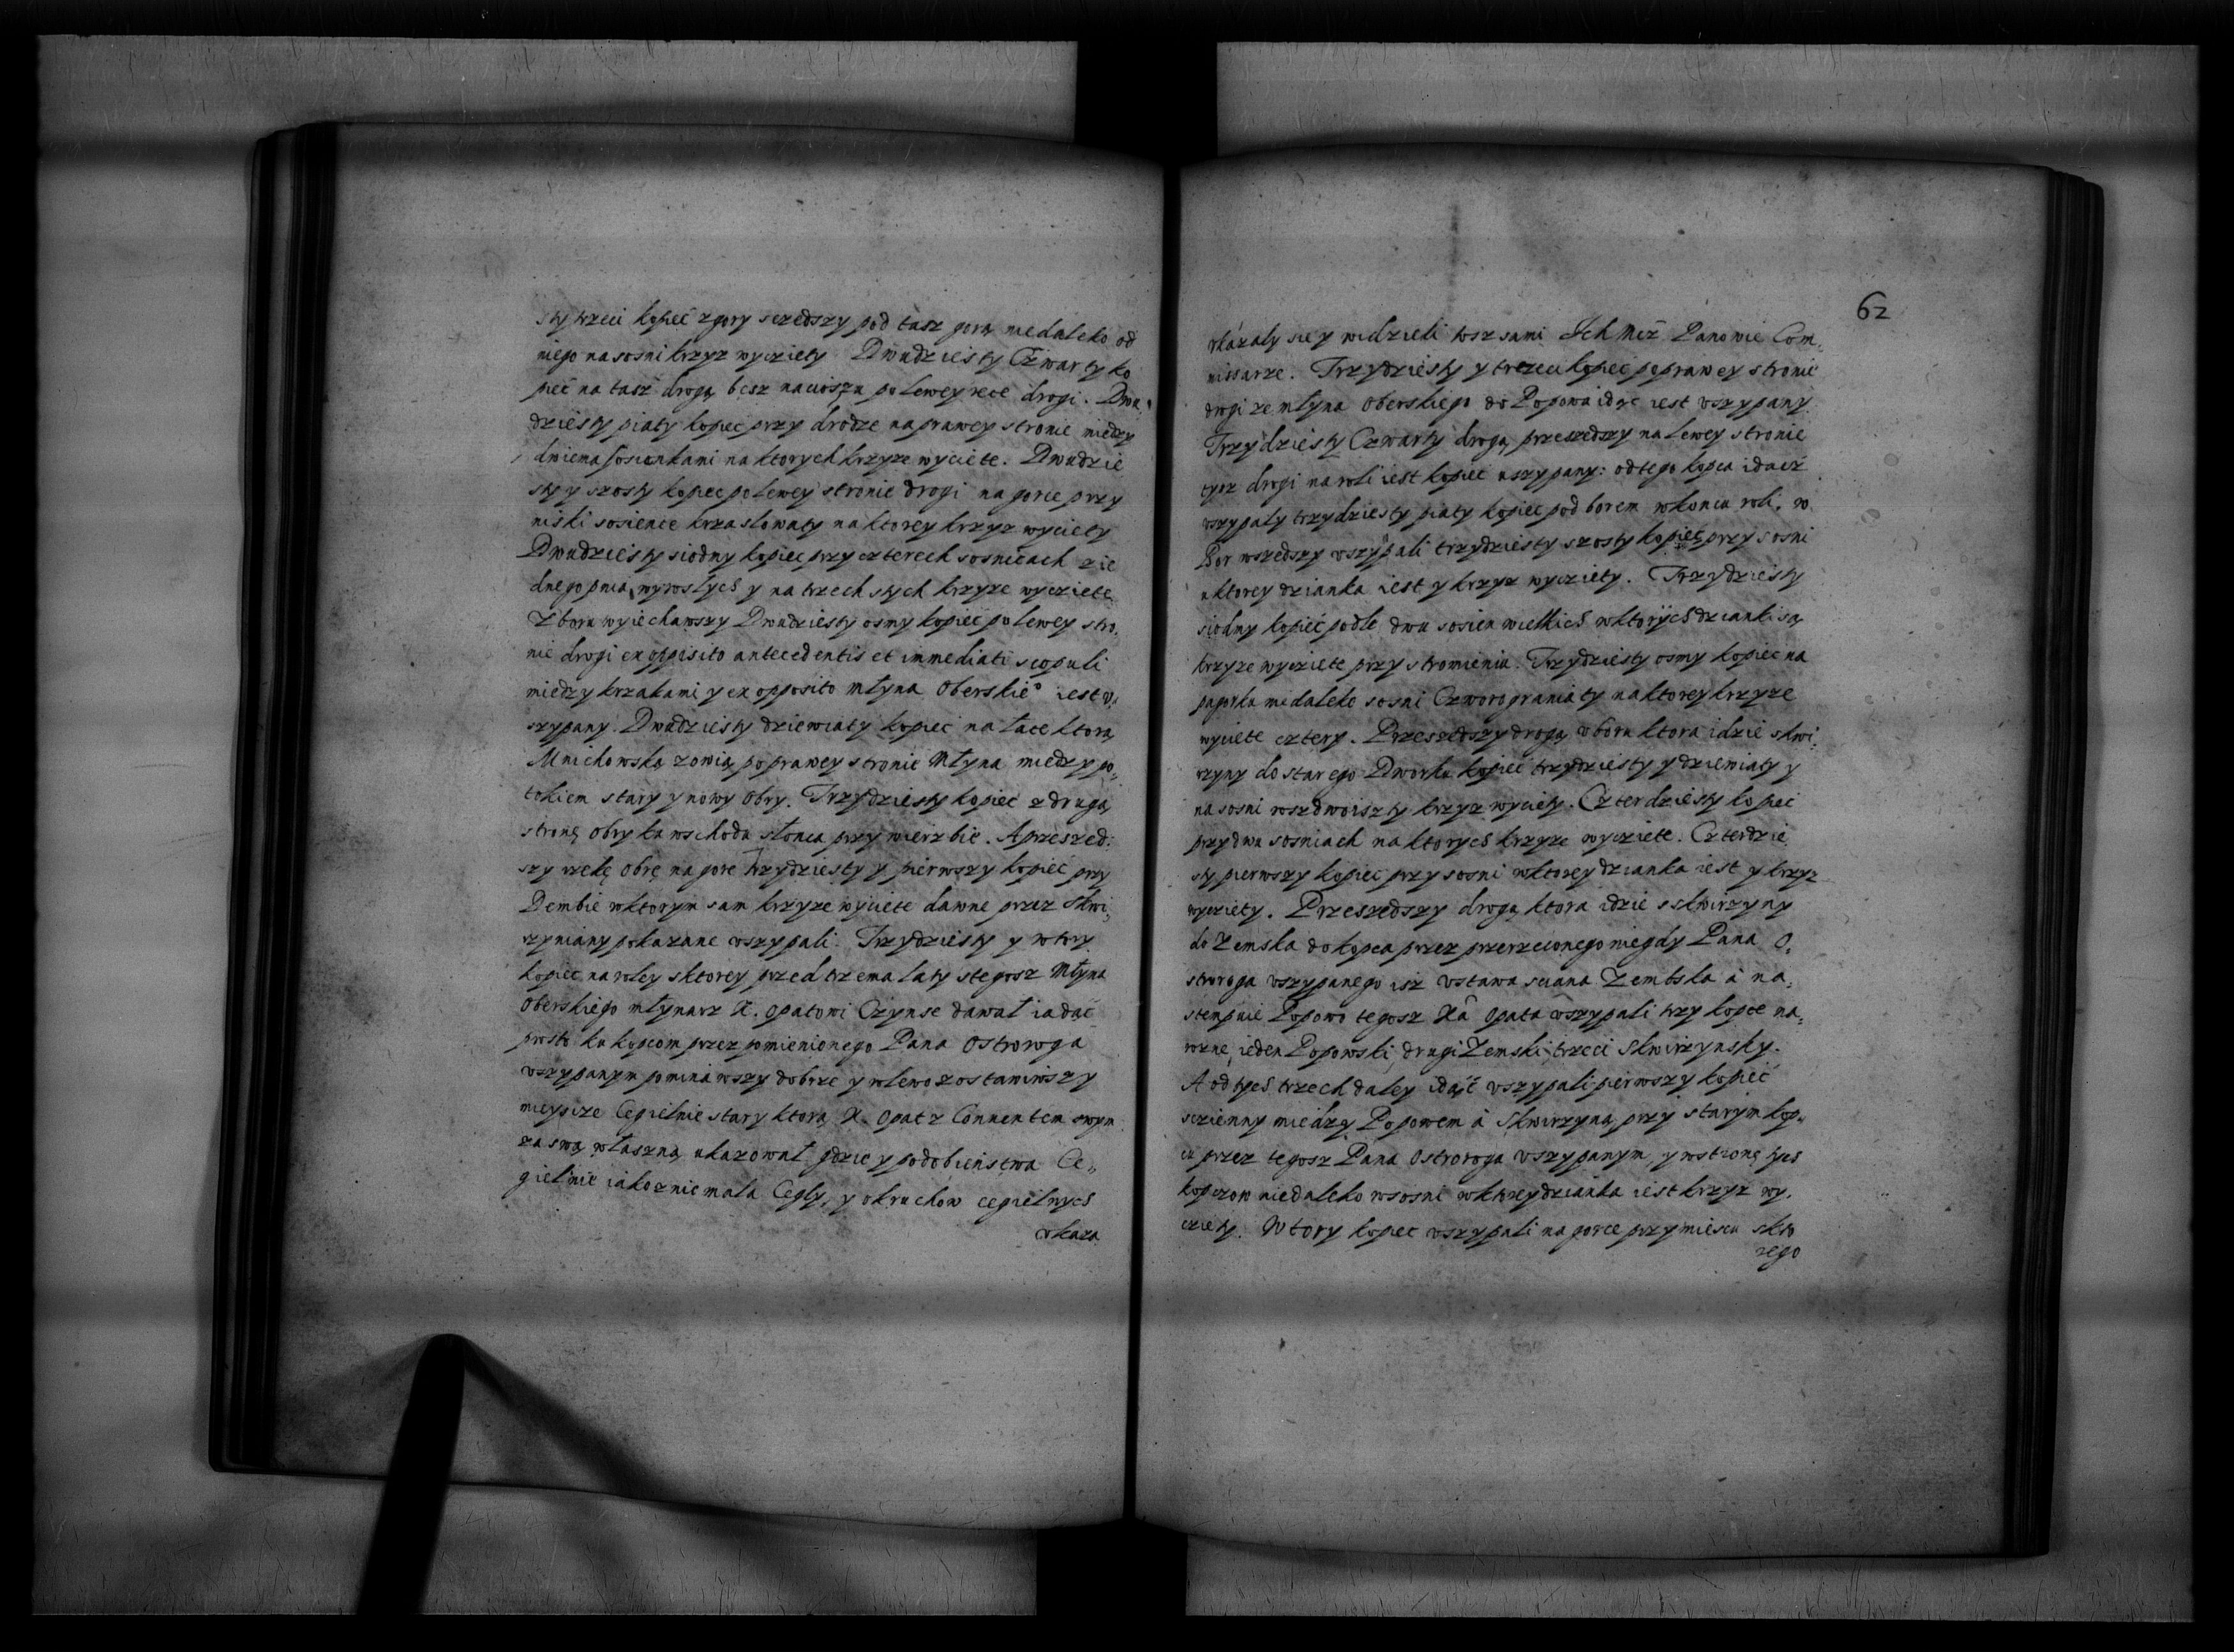 sty trzeci kopiec z gory szedszy pod tasz gorą niedaleko od
niego na sosni krzyz wycziety Dwudziesty Czwarty ko
piec na tasz drogą besz naciosza po lewey rece drogi. Dwu,
dziesty piaty kopiec przy drodze na prawey stronie miedzy
dwiema sosienkami na ktorych krzyze wyciete. Dwudzie
sty y szosty kopiec po lewey stronie drogi na gorce przy
niski sosience krzaslowaty na ktorey krzyz wyciety
Dwudziesty siodmy kopiec przy czterech sosnicach z ie
dnego pnia wyroslych y na trzech stych krzyze wycziete
Z boru wyiechawszy Dwudziesty osmy kopiec po lewey stro,
nie drogi ex opposito antecedentis et immediati scopuli
miedzy krzakami y ex opposito Młyna Oberskie° iest v,
szypany. Dwudziesty dziewiaty kopiec na łace ktorą
Mnichowską zowią po prawey stronie Młyna miedzy po,
tokiem stary y nowy Obry. Trzydziesty kopiec z drugą
stronę Obry ku wschodu słonca przy wierzbie. A przeszed:
szy rzekę Obrę na gore trzydziesty y pierwszy kopiec przy
Dembie w ktorym sam krzyze wyciete dawne przez Skwi,
rzyniany pokazane vszypali. Trzydziesty y wtory
kopiec na roley s ktorey przed trzema laty stegosz Młyna
Oberskiego młynarz X. Opatowi Czynse dawał iadąc
prosto ku kopcom przez pomienionego Pana Ostroroga
vszypanym pominawszy dobrze y wlewo zostawiwszy
mieyscze Cegielnie stary ktorą X. Opat z Conuentem swym
za swą własną ukazował gdzie y podobienstwa Ce,
gielnie iakoz niemala Cegly, y okruchow cegielnych
vkaza
62
vkazaly sie y widzieli tosz sami Ich Mcz Panowie Com,
missarze. Trzydziesty y trzeci kopiec po prawey stronie
drogi ze młyna Oberskiego do Popowa idąc iest vszypany.
Trzydziesty Czwarty drogą przeszedszy na lewey stronie
tysz drogi na roli iest kopiec uszypany: od tego kopca idacz
vszypaly trzydziesty piaty kopiec pod borem w koncu roli. w
Bor wszedszy vszypali trzydziesty szosty kopiec przy sosni
u ktorey dzianka iest y krzyz wycziety. Trzydziesty
siodmy kopiec podle dwu sosien wielkich w ktorych dzianki są
krzyze wycziete przy stromieniu. Trzydziesty osmy kopiec na
pagorku niedaleko sosni Czworograniaty na ktorey krzyze
wyciete cztery. Przeszedszy drogą w boru ktora idzie skwi,
rzyny do starego Dworku kopiec trzydziesty y dziewiaty y
na sosni roszdwoiszty krzyz wyciety. Czterdziesty kopiec
przy dwu sosniach na ktorych krzyze wycziete. Czterdzie
sty pierwszy kopiec przy sosni w ktorey dzianka iest y krzyz
wycziety. Przeszedszy drogą ktora idzie s skwirzyny
do Zemska do kopca przez przerzeczonego niegdy Pana O,
stroroga vszypanego isz vstawa sciana Zembska à na,
stempuie Popowo tegosz Xâ Opata vszypali trzy kopce na,
rozne, ieden Popowski, drugi Zemski trzeci Skwirzynsky.
A od tych trzech daley idąc vszypali pierwszy kopiec
sczienny miedzy Popowem à Skwirzyną przy starym kop,
cu przez tegosz Pana Ostroroga vszypanym, y w stronę tych
kopczow niedaleko w sosni w ktorey dzianka iest krzyz wy,
cziety. Wtory kopiec vszypali na gorce przy miescu skto
rego